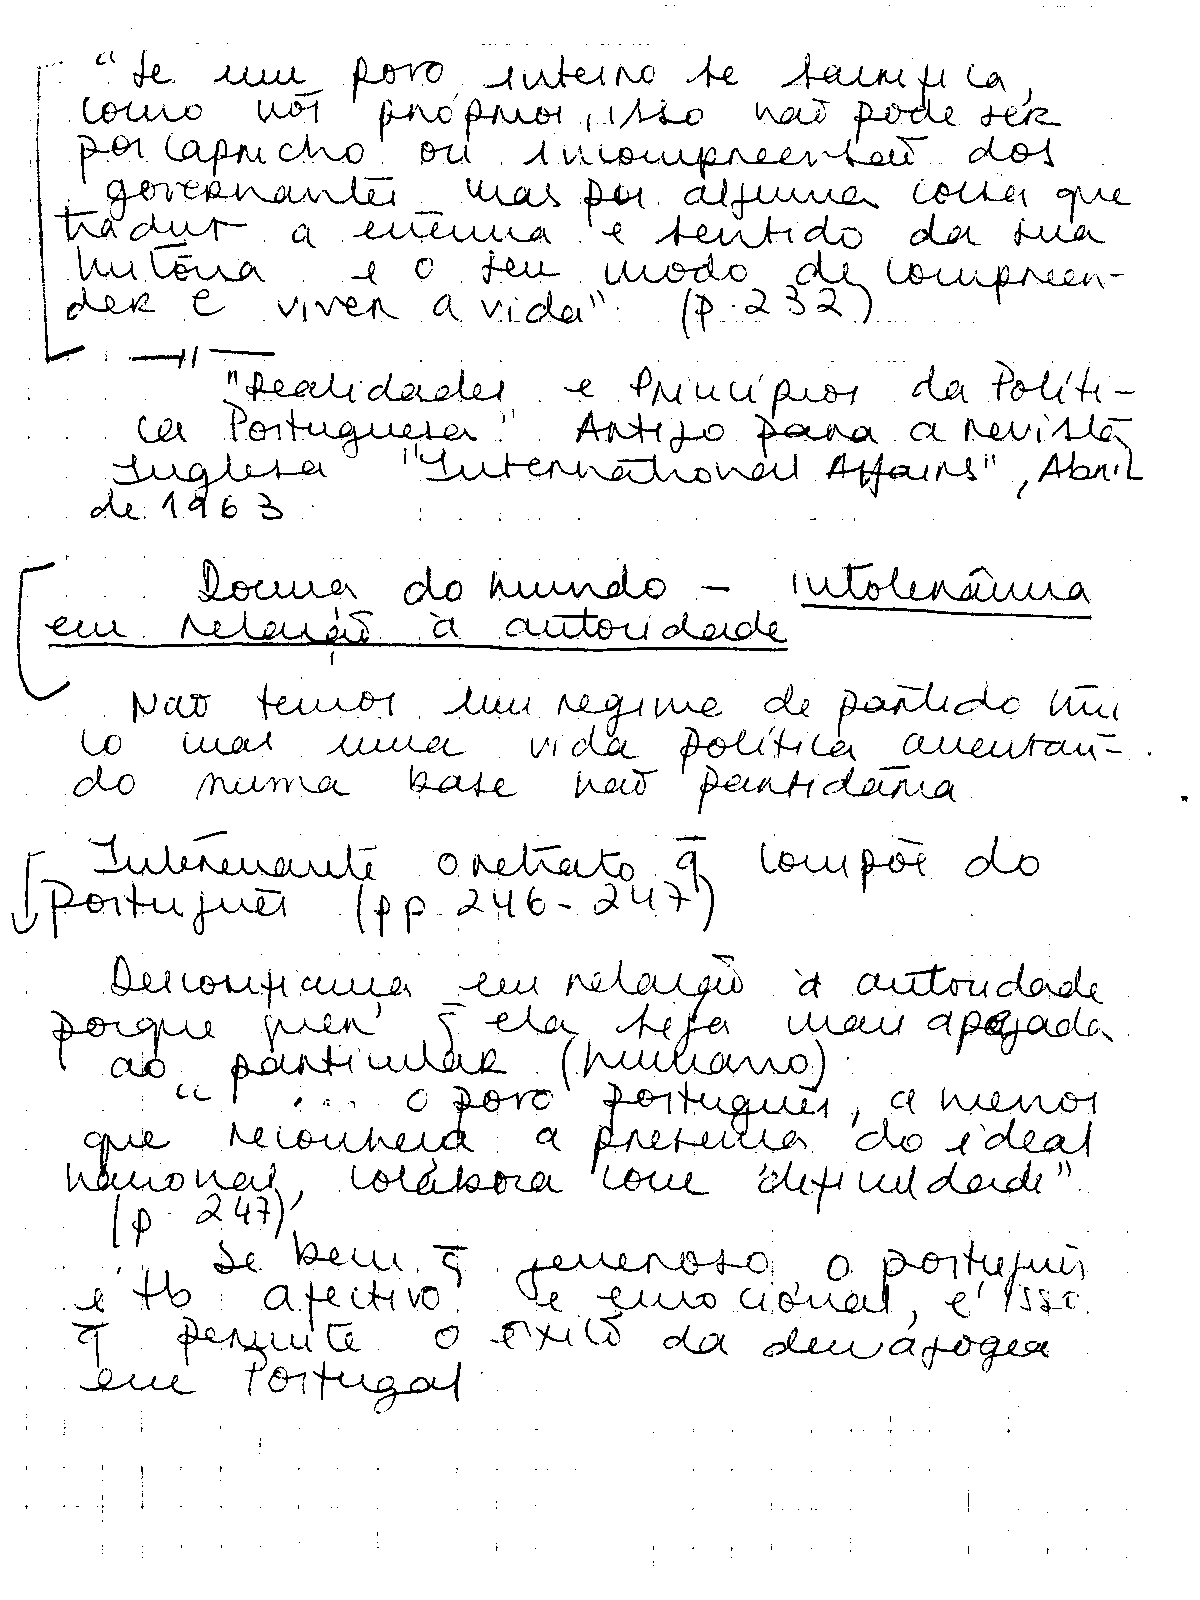 "Se um povo inteiro se sacrifica,
como nós próprios, isso não pode ser
por capricho ou incompreensão dos
governantes mas por alguma coisa que
traduz a essência e sentido da sua
história e o seu modo de compreen-
der e viver a vida" (p. 232)
—"—
"Realidades e Princípios da Políti-
ca Portuguesa". Artigo para a revista
Inglesa "International Affairs", Abril
de 1963
Doença do mundo - intolerância
em relação à autoridade
Não temos um regime de partido úni
co mas uma vida política assentan-
do numa base não partidária
Interessante o retrato q̄ compõe do
Português (pp. 246-247)
Desconfiança em relação à autoridade
porque quer q̄ ela seja mais apegada
ao particular (humano)
"... o povo português, a menos
que reconheça a presença do ideal
nacional, colabora com dificuldade"
(p. 247)
Se bem q̄ generoso, o português
é tb afectivo e emocional, é isso
q̄ permite o êxito da demagogia
em Portugal